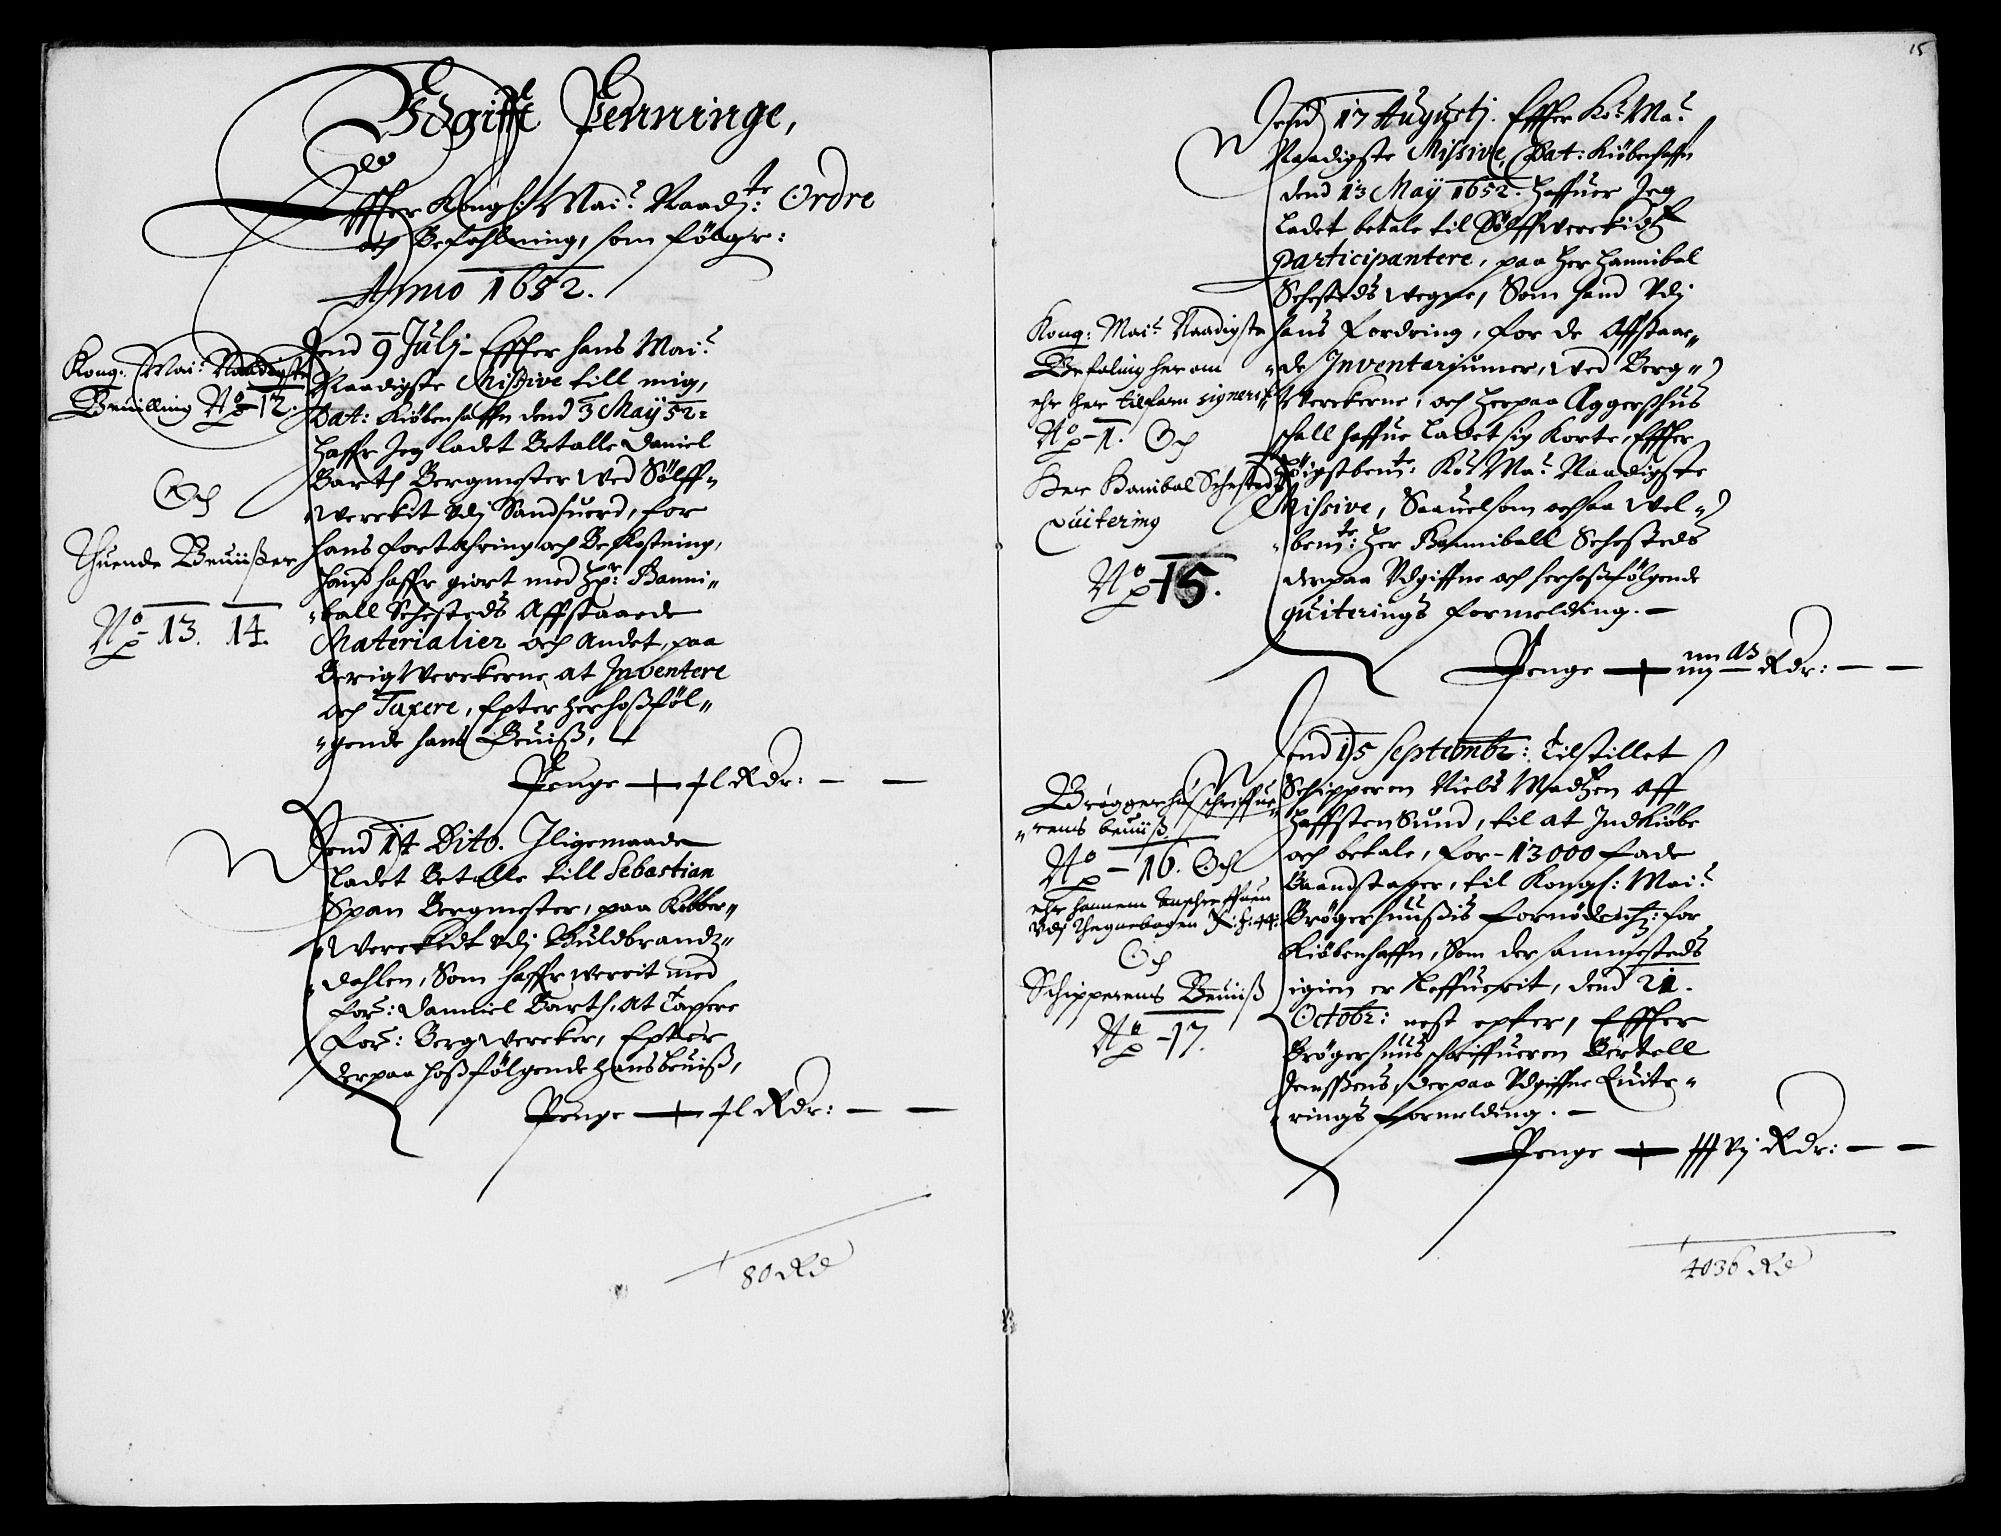 Udgifft Penninge,
Effther Kongl: Mai: Naad: te Ordre
och Befahlning, som fölger:
Anno 1652.
Kong: Mai: Naadigste
Beuilling No 12.
Och
Thuende Beuiißer
No 13. 14.
Dend 9 Julj Effther hans Mai:
Naadigste Missive till mig,
Dat: Kiöbenhaffn dend 3 May 52
haffr Jeg ladet Betalle Daniel
Barth Bergmester wed Sölff-
werckit vdj Sandsuerd, for
hans fortæhring och Bekostning,
hand haffr giort med Hr: Banni-
ball Sehesteds Affstaaede
Materialier och Andet, paa
BerigWerckerne at Inventere
och Taxere, Epter herhoßföl-
gende hans Beuiß,
Penge + xl Rdr:
Dend 14 Dito. Iligemaade
ladet Betalle till Sebastian
Span Bergmester, paa Kobber-
Werckidt vdj Guldbrandz-
dahlen, Som haffr werrit med
for: Danniel Barth, At Taxere
for: Bergwercker, Epter
derpaa hoßfölgende hans beuiß,
Penge + xl Rdr:
80 Rd
15
Dend 17 Augustj. Effter Ko: Ma:
Naadigste Missive, Dat: Kiöbenhaffn
dend 13 May 1652. haffuer Jeg
ladet betale til Sölffwerckidtz
participantere, paa Her Hannibal
Sehesteds wegne, Som hand vdj
hans fordring, for de Affstaae-
de Inventariumer, wed Berg-
Werckerne, och herpaa Aggerßhus
schall haffue ladet sig korte, Effter
Höigstbem:te Ko: Ma: Naadigste
Missive, Saauelsom ochsaa Wel-
bem:te Her Hanniball Sehesteds
derpaa Udgiffne och herhoßfölgende
quiterings formelding.
Kong: Mai: Naadigste
Befaling her om
ehr her tilforn signerit
No 1. Och
Her Hanibal Sehesteds
Quitering
No 15.
Penge + Rdr:
Dend 15 Septembr: Tilstillet
Schipperen Niels Madtzen aff
Haffsten Sund, til at Indkiöbe
och betale, for 13000 fade
Baandstager, til Kongl: Mai:
Brögerhuußis fornödenhtz: for
Kiöbenhaffn, Som der sammesteds
igien er leffuerit, dend 21.
Octobr: nest epter, Effther
Brögerhuus schriffueren Bertell
Jenssens derpaa Udgiffne Quite-
rings formelding.
Bröggerhus schriffue-
rens beuiiß
No 16. Och
ehr hannem anschreffuen
vdj
Och
Schipperens Beuiiß
No 17.
Penge + xxxvj Rdr:
4036 Rd